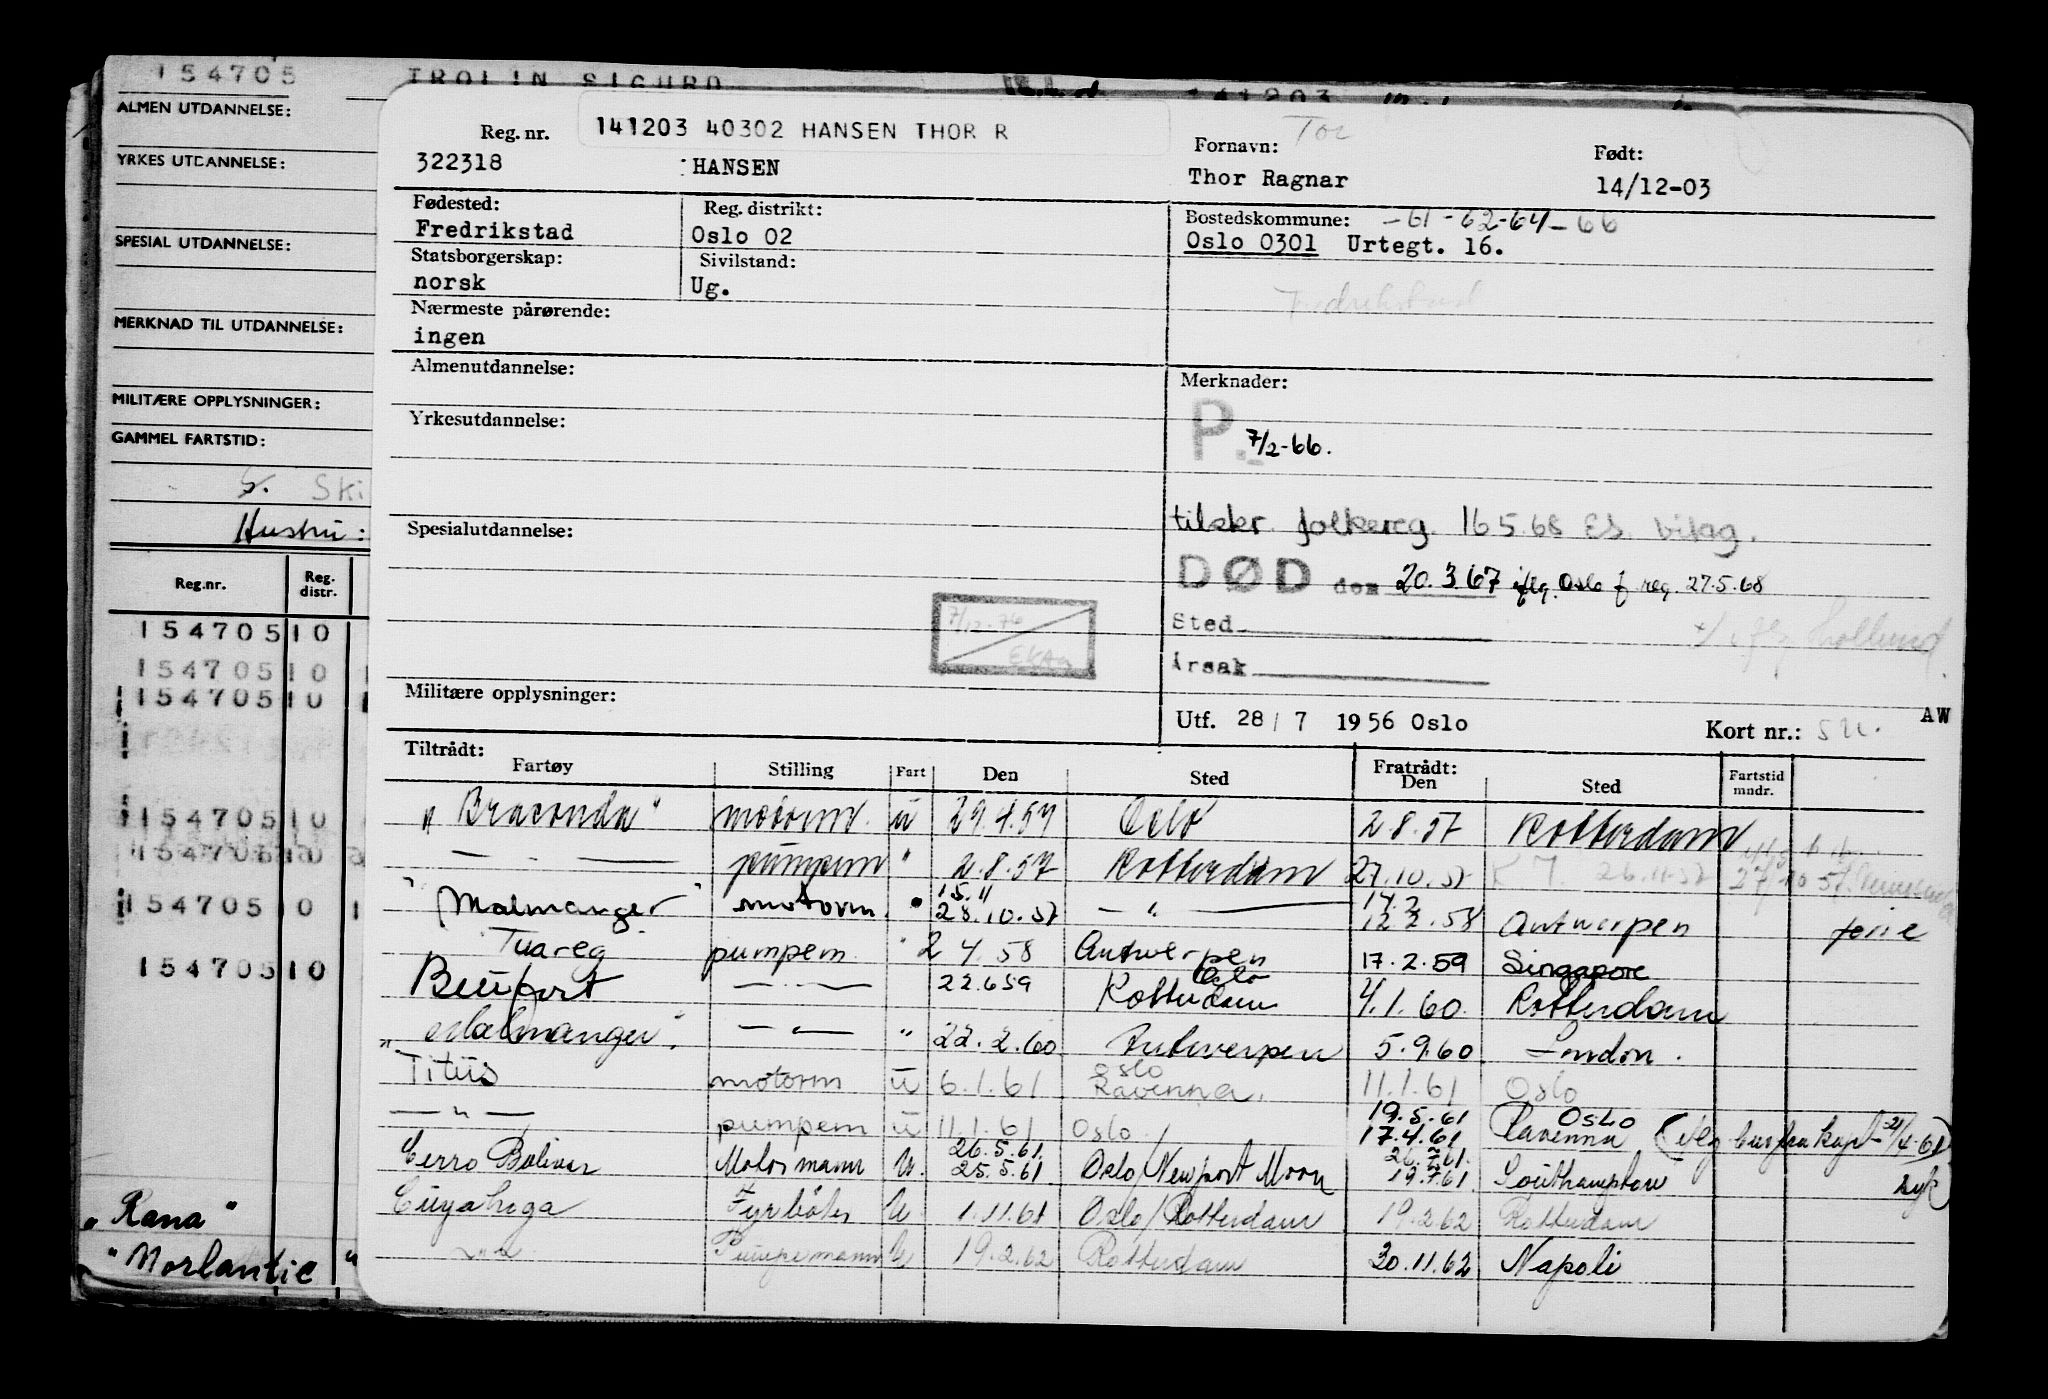 154705 TROLIN SIGURD 141203
ALMEN UTDANNELSE:
YRKES UTDANNELSE:
SPESIAL UTDANNELSE:
MERKNAD TIL UTDANNELSE:
MILITÆRE OPPLYSNINGER:
GAMMEL FARTSTID:
S. Ski
Hustru:
Reg.nr. Reg. distr.
154705 10
154705 10
154705 10
154705 10
154705 10
154705 10 1
154705 10
"Rana"
"Norlantic"
Reg. nr. 141203 40302 HANSEN THOR R Tor
Fornavn: Født:
322318 HANSEN Thor Ragnar 14/12-03
Fødested: Reg. distrikt: Bostedskommune: -61-62-64-66
Fredrikstad Oslo 02 Oslo 0301 Urtegt. 16.
Statsborgerskap: Sivilstand:
norsk Ug. Fredrikstad
Nærmeste pårørende:
ingen
Almenutdannelse: Merknader:
Yrkesutdannelse: P. 7/2-66.
tilskr. folkereg. 16.5.68 Es. bilag.
Spesialutdannelse:
DØD den 20.3.67 iflg. Oslo f reg. 27.5.68
7/12-76
Sted
Årsak
Militære opplysninger:
Utf. 28/7 1956 Oslo Kort nr.: AW
Tiltrådt: Fratrådt:
Fartøy Stilling Fart Den Sted Den Sted Fartstid mndr.
"Braconda" motorm. u 29.4.57 Oslo 2 8.57 Rotterdam
— " — pumpem " 2.8.57 Rotterdam 27.10.57 26.11.57
"Malmanger" motorm. " 15.11 28.10.57 — " — 17.2 12.2.58 Antwerpen ferie
Tuareg pumpem. " 2 4.58 Antwerpen 17.2.59 Singapore
Beaufort — " — 22.6.59 Oslo Rotterdam 4.1.60. Rotterdam
"Malmanger". — " — " 22.2.60 Antwerpen 5.9.60 London.
Titus motorm u 6.1.61 Oslo Ravenna. 11.1.61 Oslo
— " — pumpem u 11.1.61 Oslo. 19.5.61 17.4.61 Oslo Ravenna
Cerro Bolivar Motormann U. 26.5.61. 25.5.61 Oslo/Newport Moon 26.7.61. 19.7.61 Southampton syk)
Cuyahoga Fyrbøter U 1.11.61 Oslo/Rotterdam 19.2.62 Rotterdam
— " — Pumpemann U 19.2.62 Rotterdam 30.11.62 Napoli